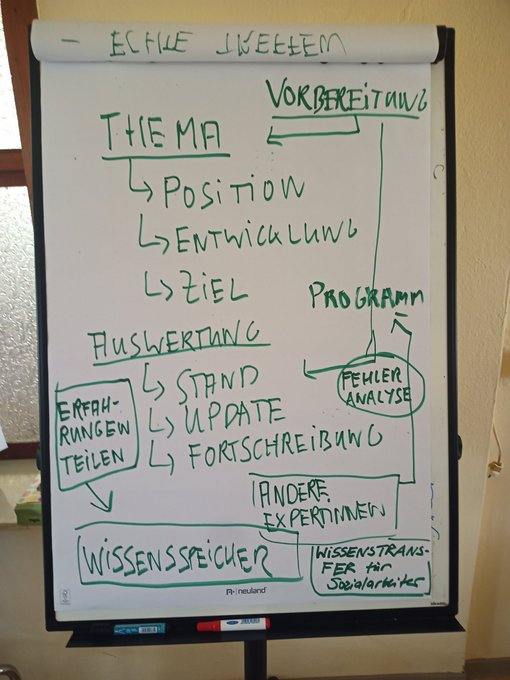 - ECHTE TREFFEN
VORBEREITUNG
THEMA
↳ POSITION
↳ ENTWICKLUNG
↳ ZIEL
PROGRAMM
AUSWERTUNG
↳ STAND
↳ UPDATE
↳ FORTSCHREIBUNG
FEHLER
ANALYSE
ERFAH-
RUNGEN
TEILEN
ANDERE
EXPERTINNEN
WISSENSSPEICHER
WISSENSTRANS-
FER für
Sozialarbeiter
neuland